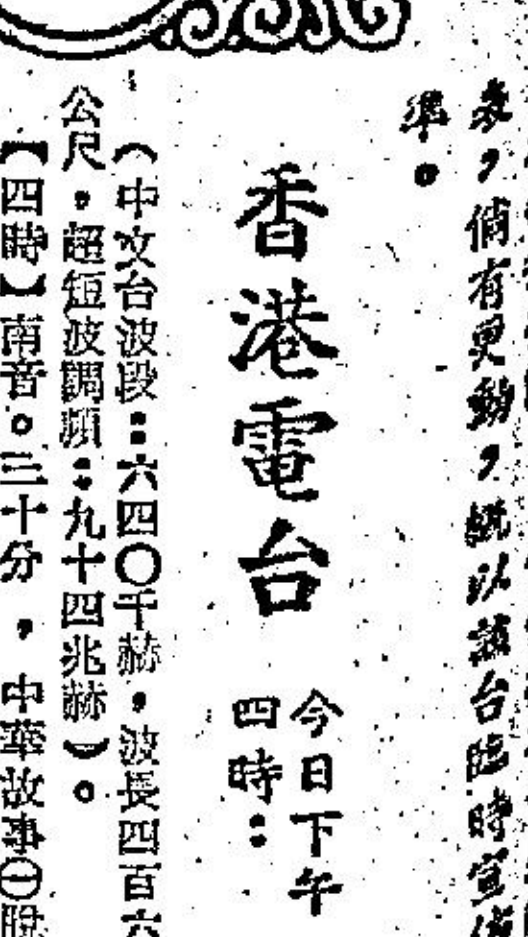 表，倘有更動，概以該台臨時宣佈
準。
香港電台
今日下午
四時：
（中文台波段：六四〇千赫，波長四百六
公尺，超短波調頻：九十四兆赫）。
【四時】南音。三十分，中華故事㊀